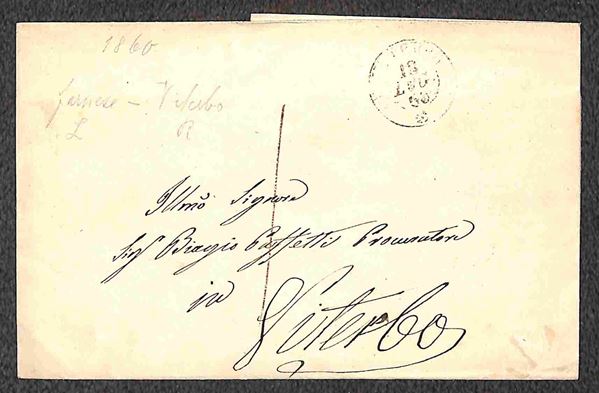 1860
farnese - Viterbo
L R
13
LUG
60
Illmo Signore
Sigr Biagio Caffetti Procuratore
in
Viterbo